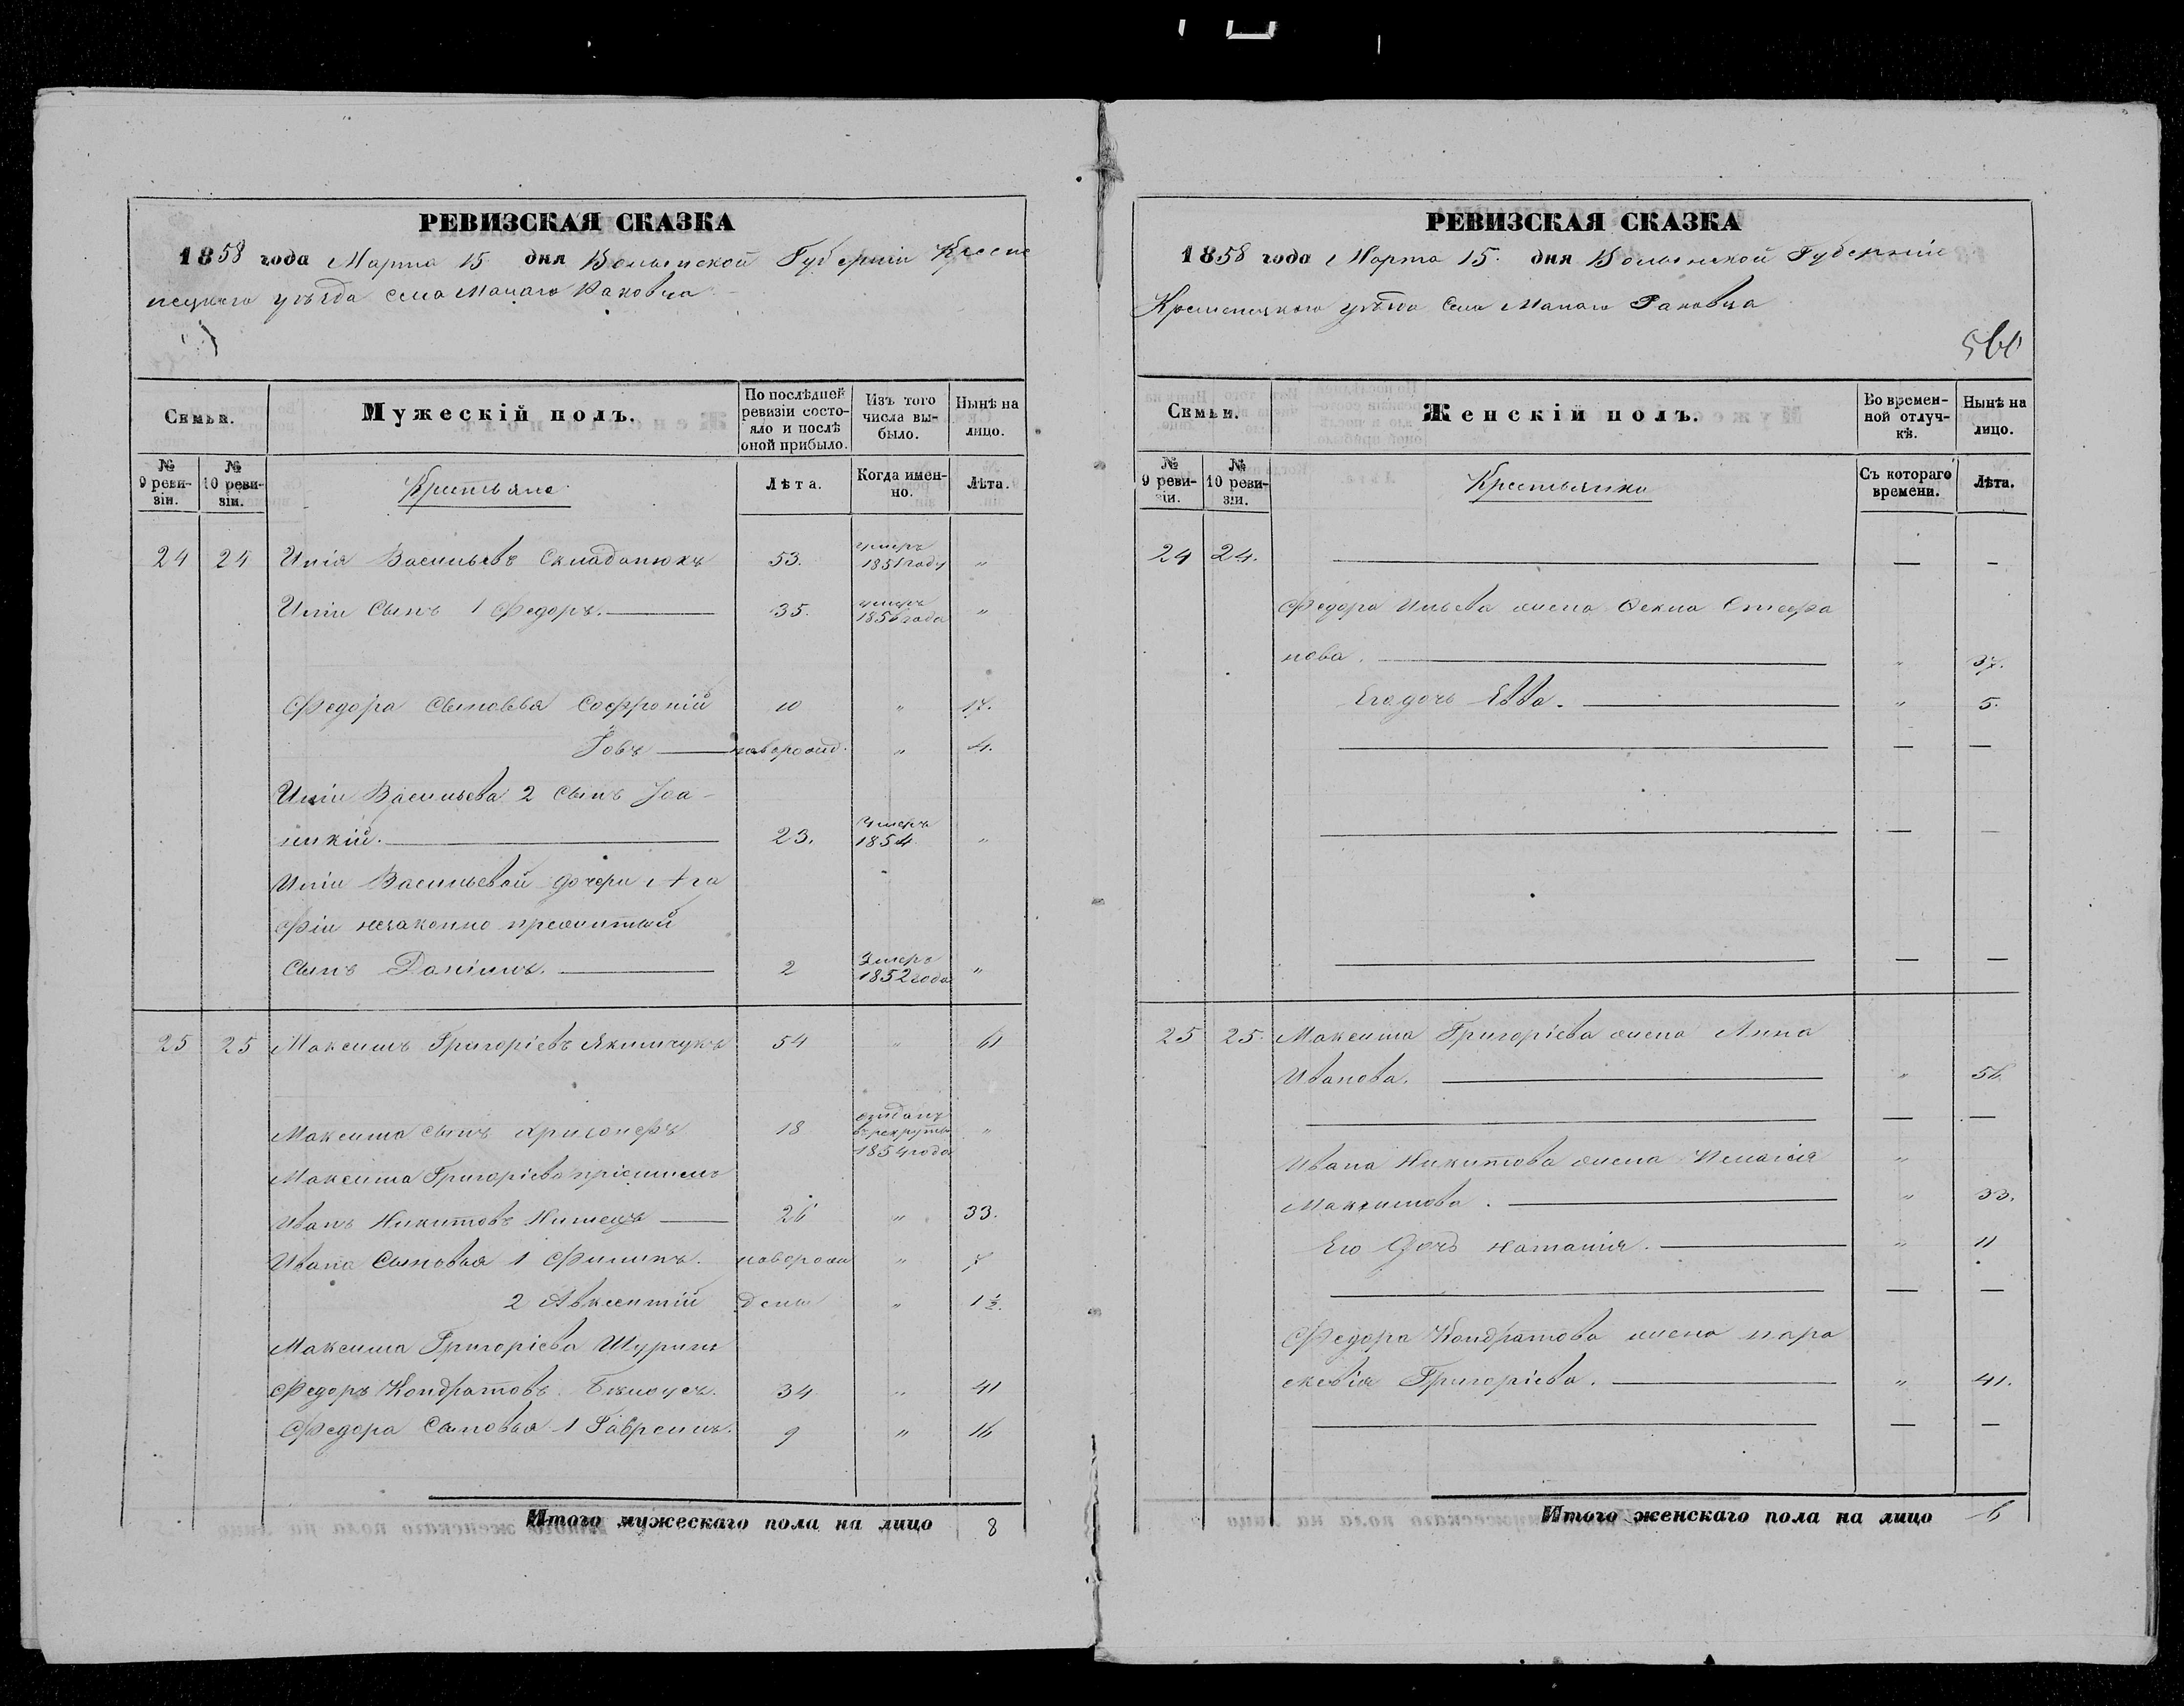 РЕВИЗСКАЯ СКАЗКА
1858 года Марта 15 дня Волынской Губернiи Креме
нецкаго уѣзда села Малаго Раковца
Семья.
Мужескiй полъ.
По послѣдней ревизiи состо-
яло и послѣ оной прибыло.
Изъ того числа вы-
было.
Нынѣ на лицо.
№ 9 реви-
зiи.
№ 10 реви-
зiи.
Крестьяне
Лѣта.
Когда имен-
но.
Лѣта.
24 24 Илiя Васильевъ Складанюкъ 53. умеръ 1851 году "
Илiи сынъ 1 Федоръ. 35. умеръ 1856 года "
Федора сыновья Софронiй 10 " 17.
Iовъ новорожд. " 4.
Илiи Васильева 2 сынъ Iоа-
никiй. 23. Умеръ 1854 "
Илiи Васильевой дочери Ага
фiи незаконно прижитый
сынъ Данiилъ. 2 Умеръ 1852 года "
25 25 Максимъ Григорiевъ Якимчукъ 54 " 61
Максима сынъ 18 отданъ въ рекруты 1854 года "
Максима Григорiева прiемышъ
Иванъ Никитовъ 26 " 33.
Ивана сыновья 1 Филипъ. новорож " 7
2 Авксентiй дены " 1½.
Максима Григорiева Шуринъ
Федоръ Кондратовъ Билоусъ. 34 " 41
Федора сыновья 1 Гаврiилъ. 9 " 16
Итого мужескаго пола на лицо 8
РЕВИЗСКАЯ СКАЗКА
1858 года Марта 15. дня Волынской Губернiи
Кременецкаго уѣзда села Малаго Раковца
560
Семьи.
Женскiй полъ.
Во времен-
ной отлуч-
кѣ.
Нынѣ на лицо.
№ 9 реви-
зiи.
№ 10 реви-
зiи.
Крестьянки
Съ котораго времени.
Лѣта.
24 24. — —
Федора Ильева жена Фекла Стефа
нова. " 37.
Его дочь Евва. " 5.
— —
— —
— —
25 25. Максима Григорiева жена Анна
Иванова. " 56
— —
Ивана Никитова жена Пелагiя "
Максимова. " 33.
Его дочь Наталiя. " 11
— —
Федора Кондратова жена пара
скевiя Григорiева. " 41.
— —
Итого женскаго пола на лицо 6